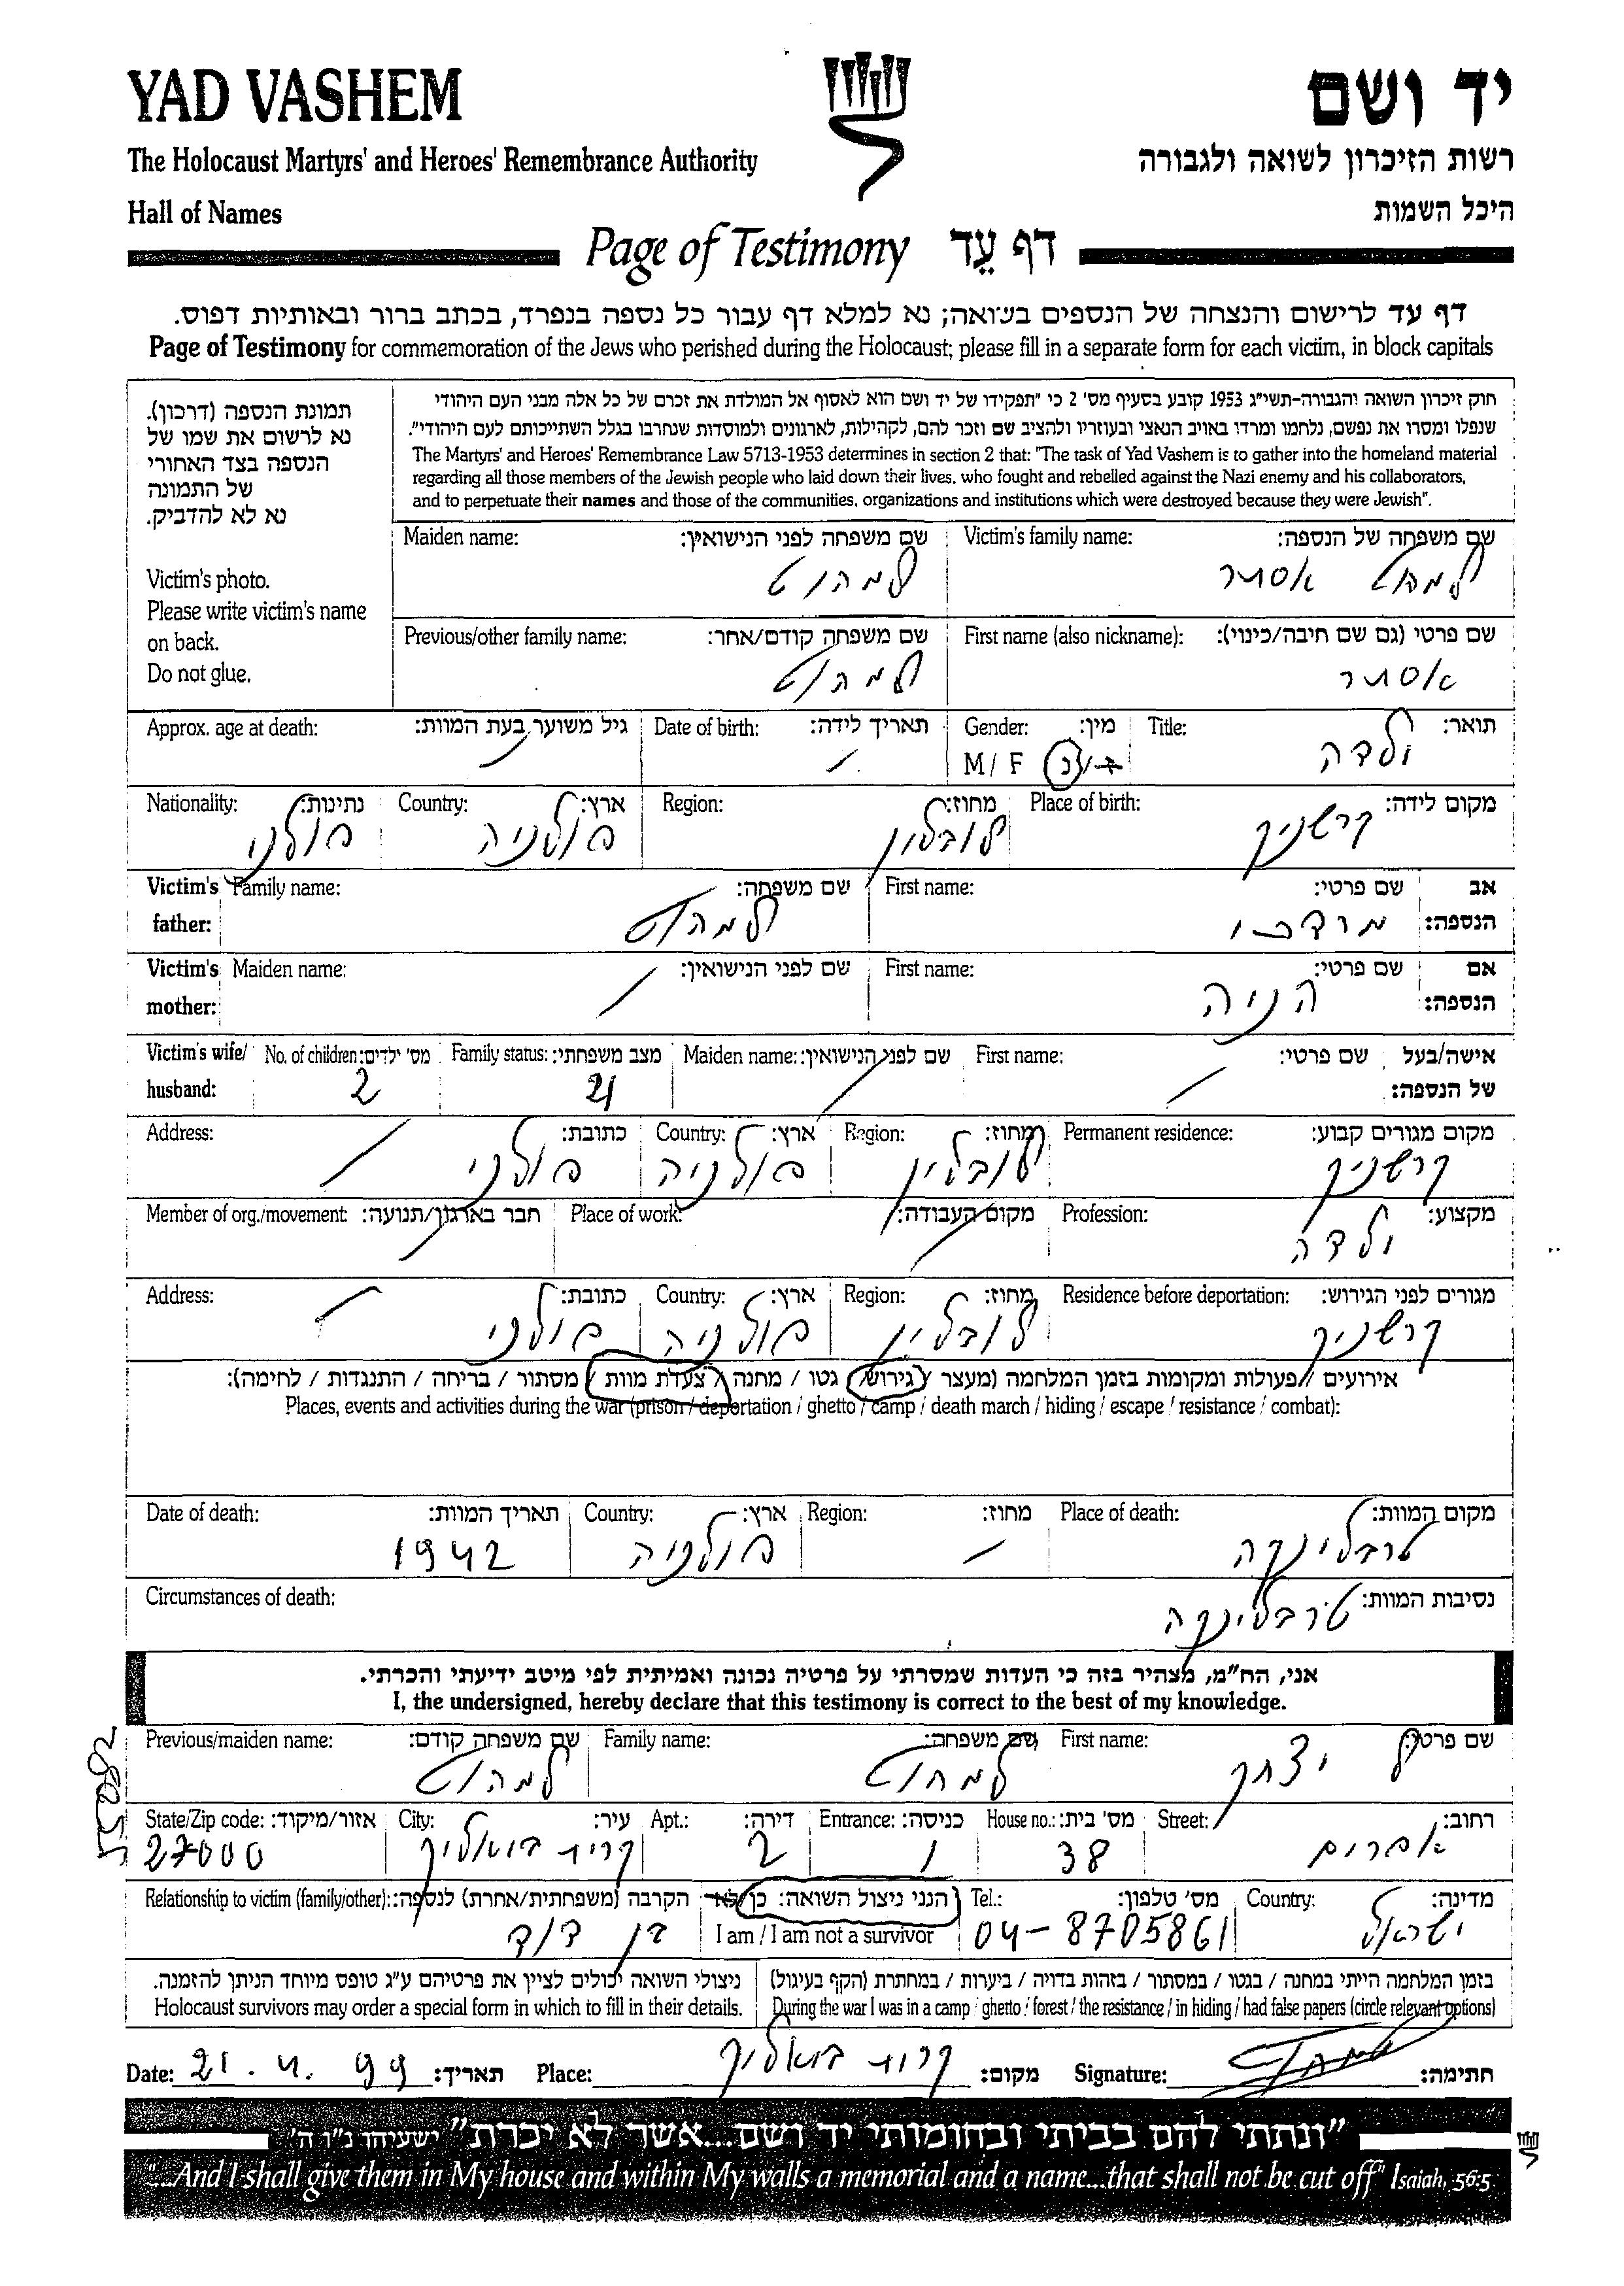 YAD VASHEM
יד ושם
The Holocaust Martyrs' and Heroes' Remembrance Authority
רשות הזיכרון לשואה ולגבורה
Hall of Names
היכל השמות
Page of Testimony דף עֵד
דף עד לרישום והנצחה של הנספים בשואה; נא למלא דף עבור כל נספה בנפרד, בכתב ברור ובאותיות דפוס.
Page of Testimony for commemoration of the Jews who perished during the Holocaust; please fill in a separate form for each victim, in block capitals
תמונת הנספה (דרכון).
נא לרשום את שמו של
הנספה בצד האחורי
של התמונה
נא לא להדביק.
Victim's photo.
Please write victim's name
on back.
Do not glue.
חוק זיכרון השואה והגבורה-תשי"ג 1953 קובע בסעיף מס' 2 כי "תפקידו של יד ושם הוא לאסוף אל המולדת את זכרם של כל אלה מבני העם היהודי
שנפלו ומסרו את נפשם, נלחמו ומרדו באויב הנאצי ובעוזריו ולהציב שם וזכר להם, לקהילות, לארגונים ולמוסדות שנחרבו בגלל השתייכותם לעם היהודי".
The Martyrs' and Heroes' Remembrance Law 5713-1953 determines in section 2 that: "The task of Yad Vashem is to gather into the homeland material
regarding all those members of the Jewish people who laid down their lives, who fought and rebelled against the Nazi enemy and his collaborators,
and to perpetuate their names and those of the communities, organizations and institutions which were destroyed because they were Jewish".
Maiden name: שם משפחה לפני הנישואין: Victim's family name: שם משפחה של הנספה:
למהוט למהוט אסתר
Previous/other family name: שם משפחה קודם/אחר: First name (also nickname): שם פרטי (גם שם חיבה/כינוי):
למהוט אסתר
Approx. age at death: גיל משוער בעת המוות: Date of birth: תאריך לידה: Gender: מין: Title: תואר:
/ / M / F ז/נ ילדה
Nationality: נתינות: Country: ארץ: Region: מחוז: Place of birth: מקום לידה:
פולני פולניה לובלין קרשניק
Victim's father: Family name: שם משפחה: First name: שם פרטי: אב הנספה:
למהוט מרדכי
Victim's mother: Maiden name: שם לפני הנישואין: First name: שם פרטי: אם הנספה:
/ הניה
Victim's wife/ husband: No. of children: מס' ילדים: Family status: מצב משפחתי: Maiden name: שם לפני הנישואין: First name: שם פרטי: אישה/בעל של הנספה:
2 / /
Address: כתובת: Country: ארץ: Region: מחוז: Permanent residence: מקום מגורים קבוע:
/ פולני פולניה לובלין קרשניק
Member of org./movement: חבר בארגון/תנועה: Place of work: מקום העבודה: Profession: מקצוע:
/ / ילדה
Address: כתובת: Country: ארץ: Region: מחוז: Residence before deportation: מגורים לפני הגירוש:
/ פולני פולניה לובלין קרשניק
אירועים / פעולות ומקומות בזמן המלחמה (מעצר / גירוש / גטו / מחנה / צעדת מוות / מסתור / בריחה / התנגדות / לחימה):
Places, events and activities during the war (prison / deportation / ghetto / camp / death march / hiding / escape / resistance / combat):
Date of death: תאריך המוות: Country: ארץ: Region: מחוז: Place of death: מקום המוות:
1942 פולניה / טרבלינקה
Circumstances of death: נסיבות המוות:
טרבלינקה
אני, הח"מ, מצהיר בזה כי העדות שמסרתי על פרטיה נכונה ואמיתית לפי מיטב ידיעתי והכרתי.
I, the undersigned, hereby declare that this testimony is correct to the best of my knowledge.
Previous/maiden name: שם משפחה קודם: Family name: שם משפחה: First name: שם פרטי:
למהוט למהוט יצחק
State/Zip code: אזור/מיקוד: City: עיר: Apt.: דירה: Entrance: כניסה: House no.: מס' בית: Street: רחוב:
27000 קרית ביאליק 2 1 38 אפרים
Relationship to victim (family/other): הקרבה (משפחתית/אחרת) לנספה: הנני ניצול השואה: כן/לא Tel.: מס' טלפון: Country: מדינה:
בן דוד I am / I am not a survivor 04-8705861 ישראל
ניצולי השואה יכולים לציין את פרטיהם ע"ג טופס מיוחד הניתן להזמנה.
Holocaust survivors may order a special form in which to fill in their details.
בזמן המלחמה הייתי במחנה / בגטו / במסתור / בזהות בדויה / ביערות / במחתרת (הקף בעיגול)
During the war I was in a camp / ghetto / forest / the resistance / in hiding / had false papers (circle relevant options)
Date: 21.4.99 תאריך: Place: קרית ביאליק מקום: Signature: למהוט חתימה:
"ונתתי להם בביתי ובחומותי יד ושם...אשר לא יכרת" ישעיהו נ"ו ה'
"...And I shall give them in My house and within My walls a memorial and a name...that shall not be cut off" Isaiah, 56:5